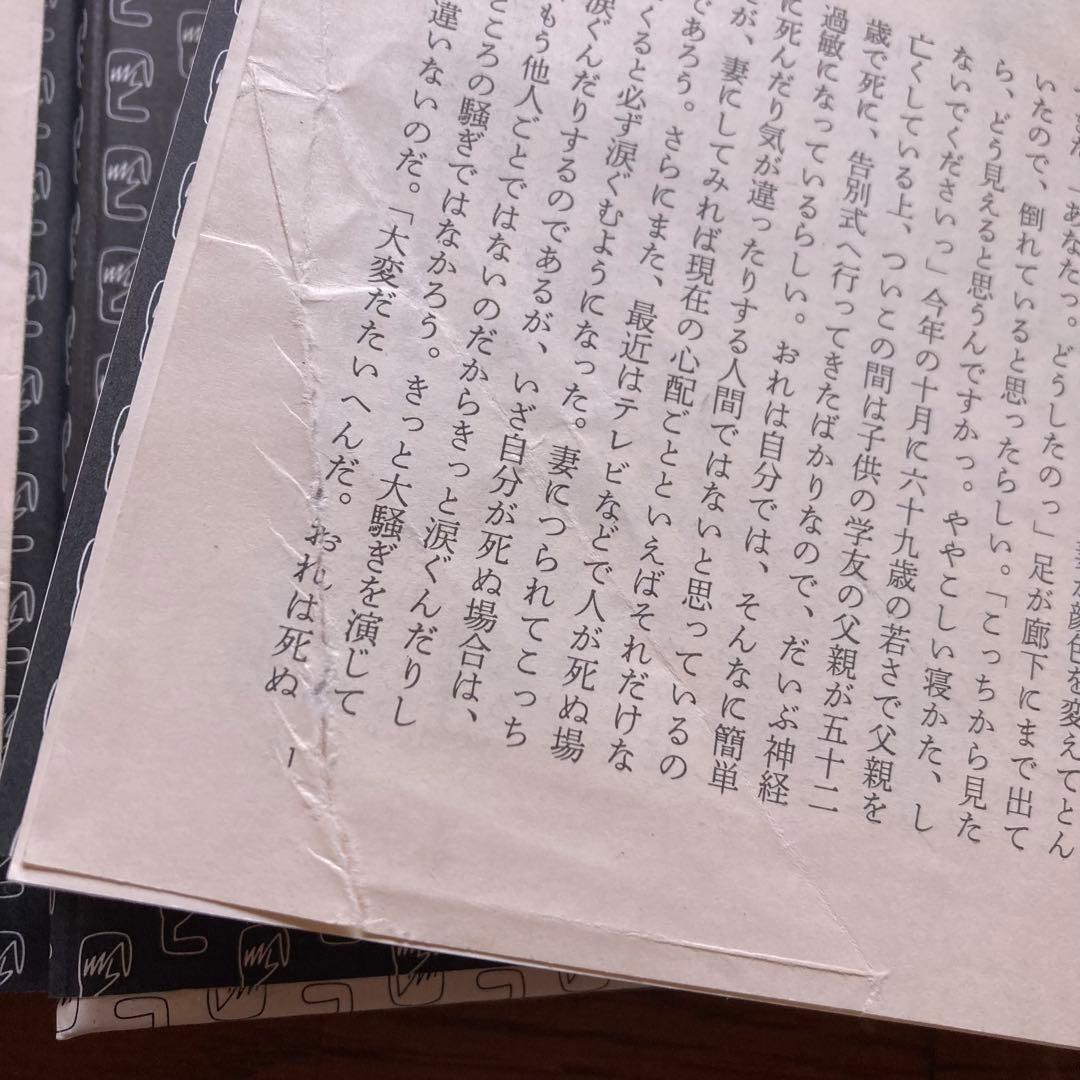 顔色を変えてとん
「あなたっ。どうしたのっ」足が廊下にまで出て
いたので、倒れていると思ったらしい。「こっちから見た
ら、どう見えると思うんですかっ。ややこしい寝かた、し
ないでくださいっ」今年の十月に六十九歳の若さで父親を
亡くしている上、ついこの間は子供の学友の父親が五十二
歳で死に、告別式へ行ってきたばかりなので、だいぶ神経
過敏になっているらしい。おれは自分では、そんなに簡単
に死んだり気が違ったりする人間ではないと思っているの
が、妻にしてみれば現在の心配ごとといえばそれだけな
であろう。さらにまた、最近はテレビなどで人が死ぬ場
くると必ず涙ぐむようになった。妻につられてこっち
涙ぐんだりするのであるが、いざ自分が死ぬ場合は、
もう他人ごとではないのだからきっと涙ぐんだりし
ところの騒ぎではなかろう。きっと大騒ぎを演じて
違いないのだ。「大変だたいへんだ。おれは死ぬ
1